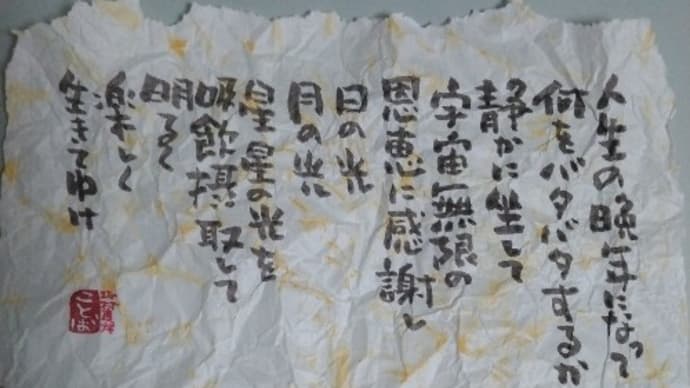 人生の晩年になって
何をバタバタするか
静かに坐して
宇宙無限の
恩恵に感謝し
日の光
月の光
星星の光を
吸飲摂取して
明るく
楽しく
生きてゆけ
ことば